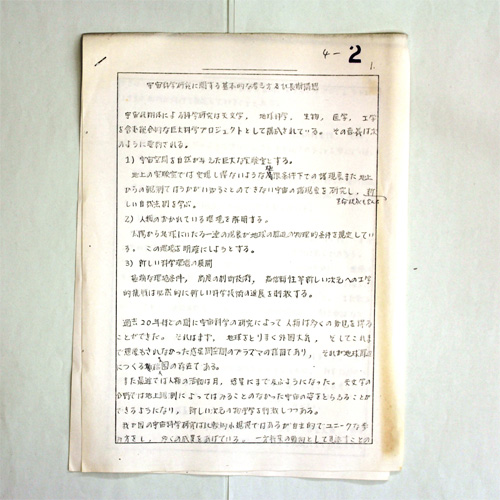 4-2
1.
宇宙科学研究に関する基本的な考え方及び長期構想
宇宙飛翔体による科学研究は天文学, 地球科学, 生物, 医学, 工学
を含む総合的な巨大科学プロジェクトとして構成されている。 その意義は次
のように要約される。
1) 宇宙空間を自然が与えた巨大な実験室とする。
地上の実験室では実現し得ないような極限条件下での諸現象また地上
からの観測ではうかがい知ることのできない宇宙の諸現象を研究し, 新
しい自然法則を学ぶ。
2) 人類のおかれている環境を解明する。
太陽から地球にいたる一連の現象が地球の周辺の物理的条件を規定してい
る。 この環境を明確にしようとする。
3) 新しい科学技術の展開
苛酷な環境条件, 高度の制御技術, 高信頼性等新しい次元への工学
的挑戦は必然的に新しい科学技術の進展を刺激する。
過去20年程の間に宇宙科学の研究によって人類は多くの知見を得る
ことができた。 それはまず, 地球をとりまく外圏大気, そしてこれま
で想像もされなかった惑星間空間のプラズマの役割であり, それが地球周辺
につくる磁気圏の存在である。
また最近では人類の活動は月, 惑星にまで及ぶようになった。 天文学の
分野では地上観測によってはみることのなかった宇宙の姿をとらえることが
できるようになり, 新しい次元の物理学を刺激しつつある。
我が国の宇宙科学研究は比較的小規模ではあるが自主的でユニークな歩
み方をし, 多くの成果をあげている。